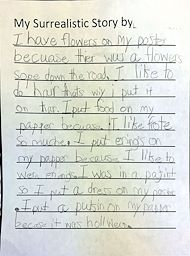 My Surrealistic Story by
I have flowers on my poster
becuase ther was a flowers
sope down the road. I like to
do hair thats wiy i put it
on ther. I put food on my
papper becuase I like
so muche. I put erings on
my papper because I like to
wern erings. I was in a paj
so I put a dress on my poster
. I put a putsin on my papper
becase it was hollween.